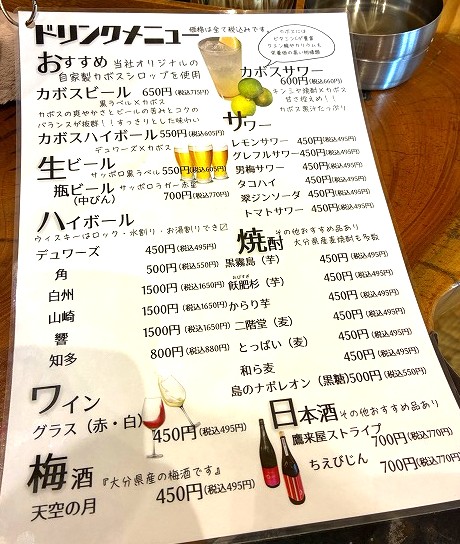 ドリンクメニュー
価格は全て税込みです。
おすすめ 当社オリジナルの
自家製カボスシロップを使用
カボスビール 650円(税込715円)
黒ラベル×カボス
カボスの爽やかさとビールの苦みとコクの
バランスが抜群!!すっきりとした味わい
カボスハイボール 550円(税込605円)
デュワーズ×カボス
生ビール
サッポロ黒ラベル 550円(税込605円)
瓶ビール サッポロラガー赤星
(中びん) 700円(税込770円)
ハイボール
ウィスキーはロック・水割り・お湯割りでき〼
デュワーズ 450円(税込495円)
角 500円(税込550円)
白州 1500円(税込1650円)
山崎 1500円(税込1650円)
響 1500円(税込1650円)
知多 800円(税込880円)
ワイン
グラス(赤・白) 450円(税込495円)
梅酒 『大分県産の梅酒です』
天空の月 450円(税込495円)
カボスには
ビタミンCが豊富
クエン酸やカリウムも
栄養価の高い柑橘類
カボスサワー
600円(税込660円)
キンミヤ焼酎×カボス
甘さ控えめ!!
カボス果汁たっぷり
サワー
レモンサワー 450円(税込495円)
グレフルサワー 450円(税込495円)
男梅サワー 450円(税込495円)
タコハイ 450円(税込495円)
翠ジンソーダ 450円(税込495円)
トマトサワー 450円(税込495円)
焼酎 その他おすすめ品あり
大分県産麦焼酎も多数
黒霧島(芋) 450円(税込495円)
おびすぎ
飫肥杉(芋) 450円(税込495円)
からり芋 450円(税込495円)
二階堂(麦) 450円(税込495円)
とっぱい(麦) 450円(税込495円)
和ら麦 450円(税込495円)
島のナポレオン(黒糖) 500円(税込550円)
日本酒 その他おすすめ品あり
鷹来屋ストライプ
700円(税込770円)
ちえびじん 700円(税込770円)